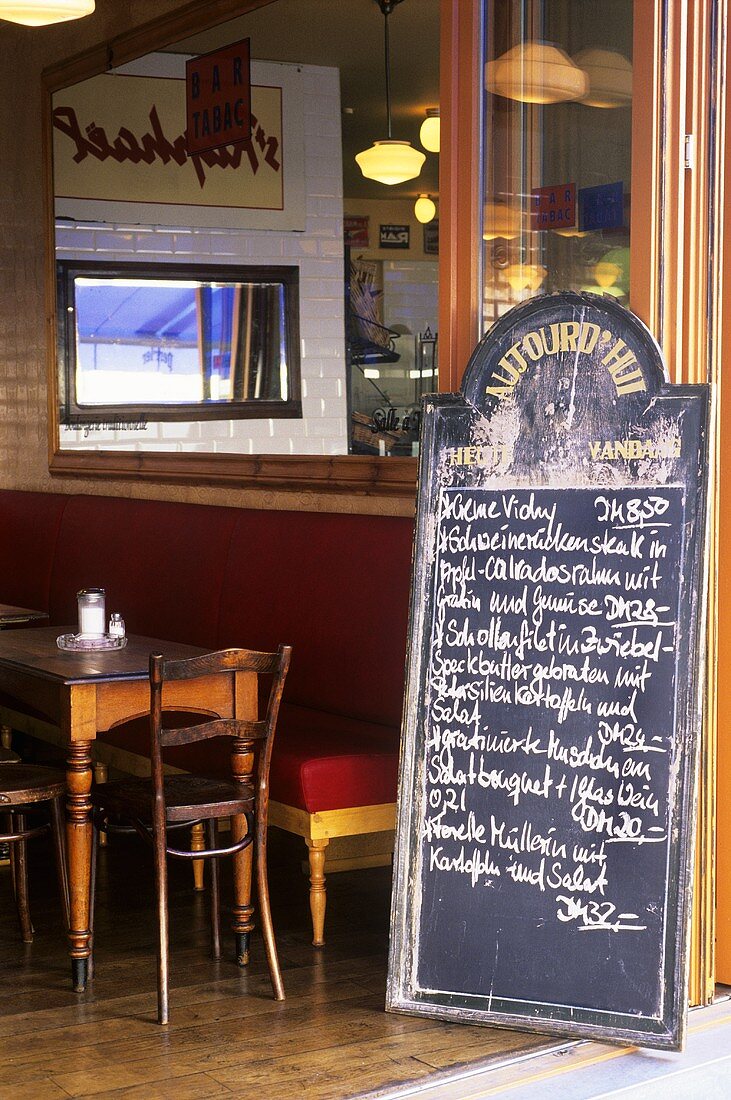 BAR
TABAC
St Raphaël
BAR
TABAC
Salle à
AUJOURD'HUI
HEUTE VANDAAG
*Creme Vichy DM 8,50
*Schweinerückensteak in
Apfel-Calvadosrahm mit
Gratin und Gemüse DM 28,-
*Schollenfilet in Zwiebel-
Speckbutter gebraten mit
Petersilienkartoffeln und
Salat DM 24,-
*gratinierte Muscheln em
Salatbouquet + 1 glas Wein
0,2l DM 20,-
*Forelle Müllerin mit
Kartoffeln und Salat
DM 32,-